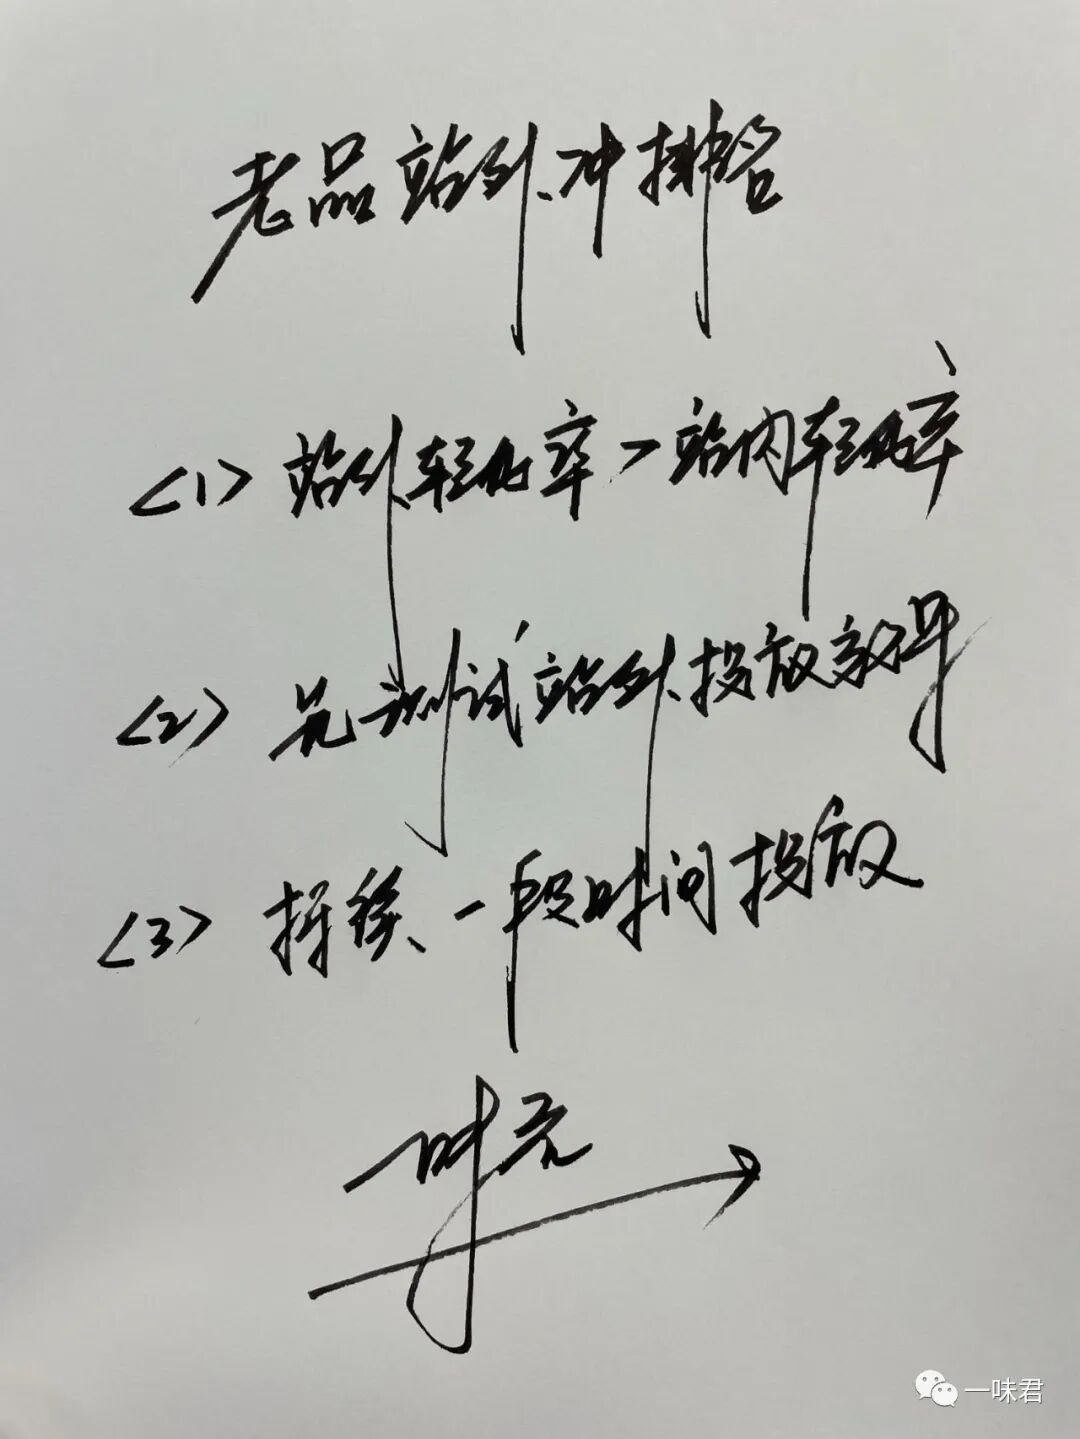 老品站外冲排名
<1> 站外转化率>站内转化率
<2> 先测试站外投放效果
<3> 持续、一段时间投放
一味君